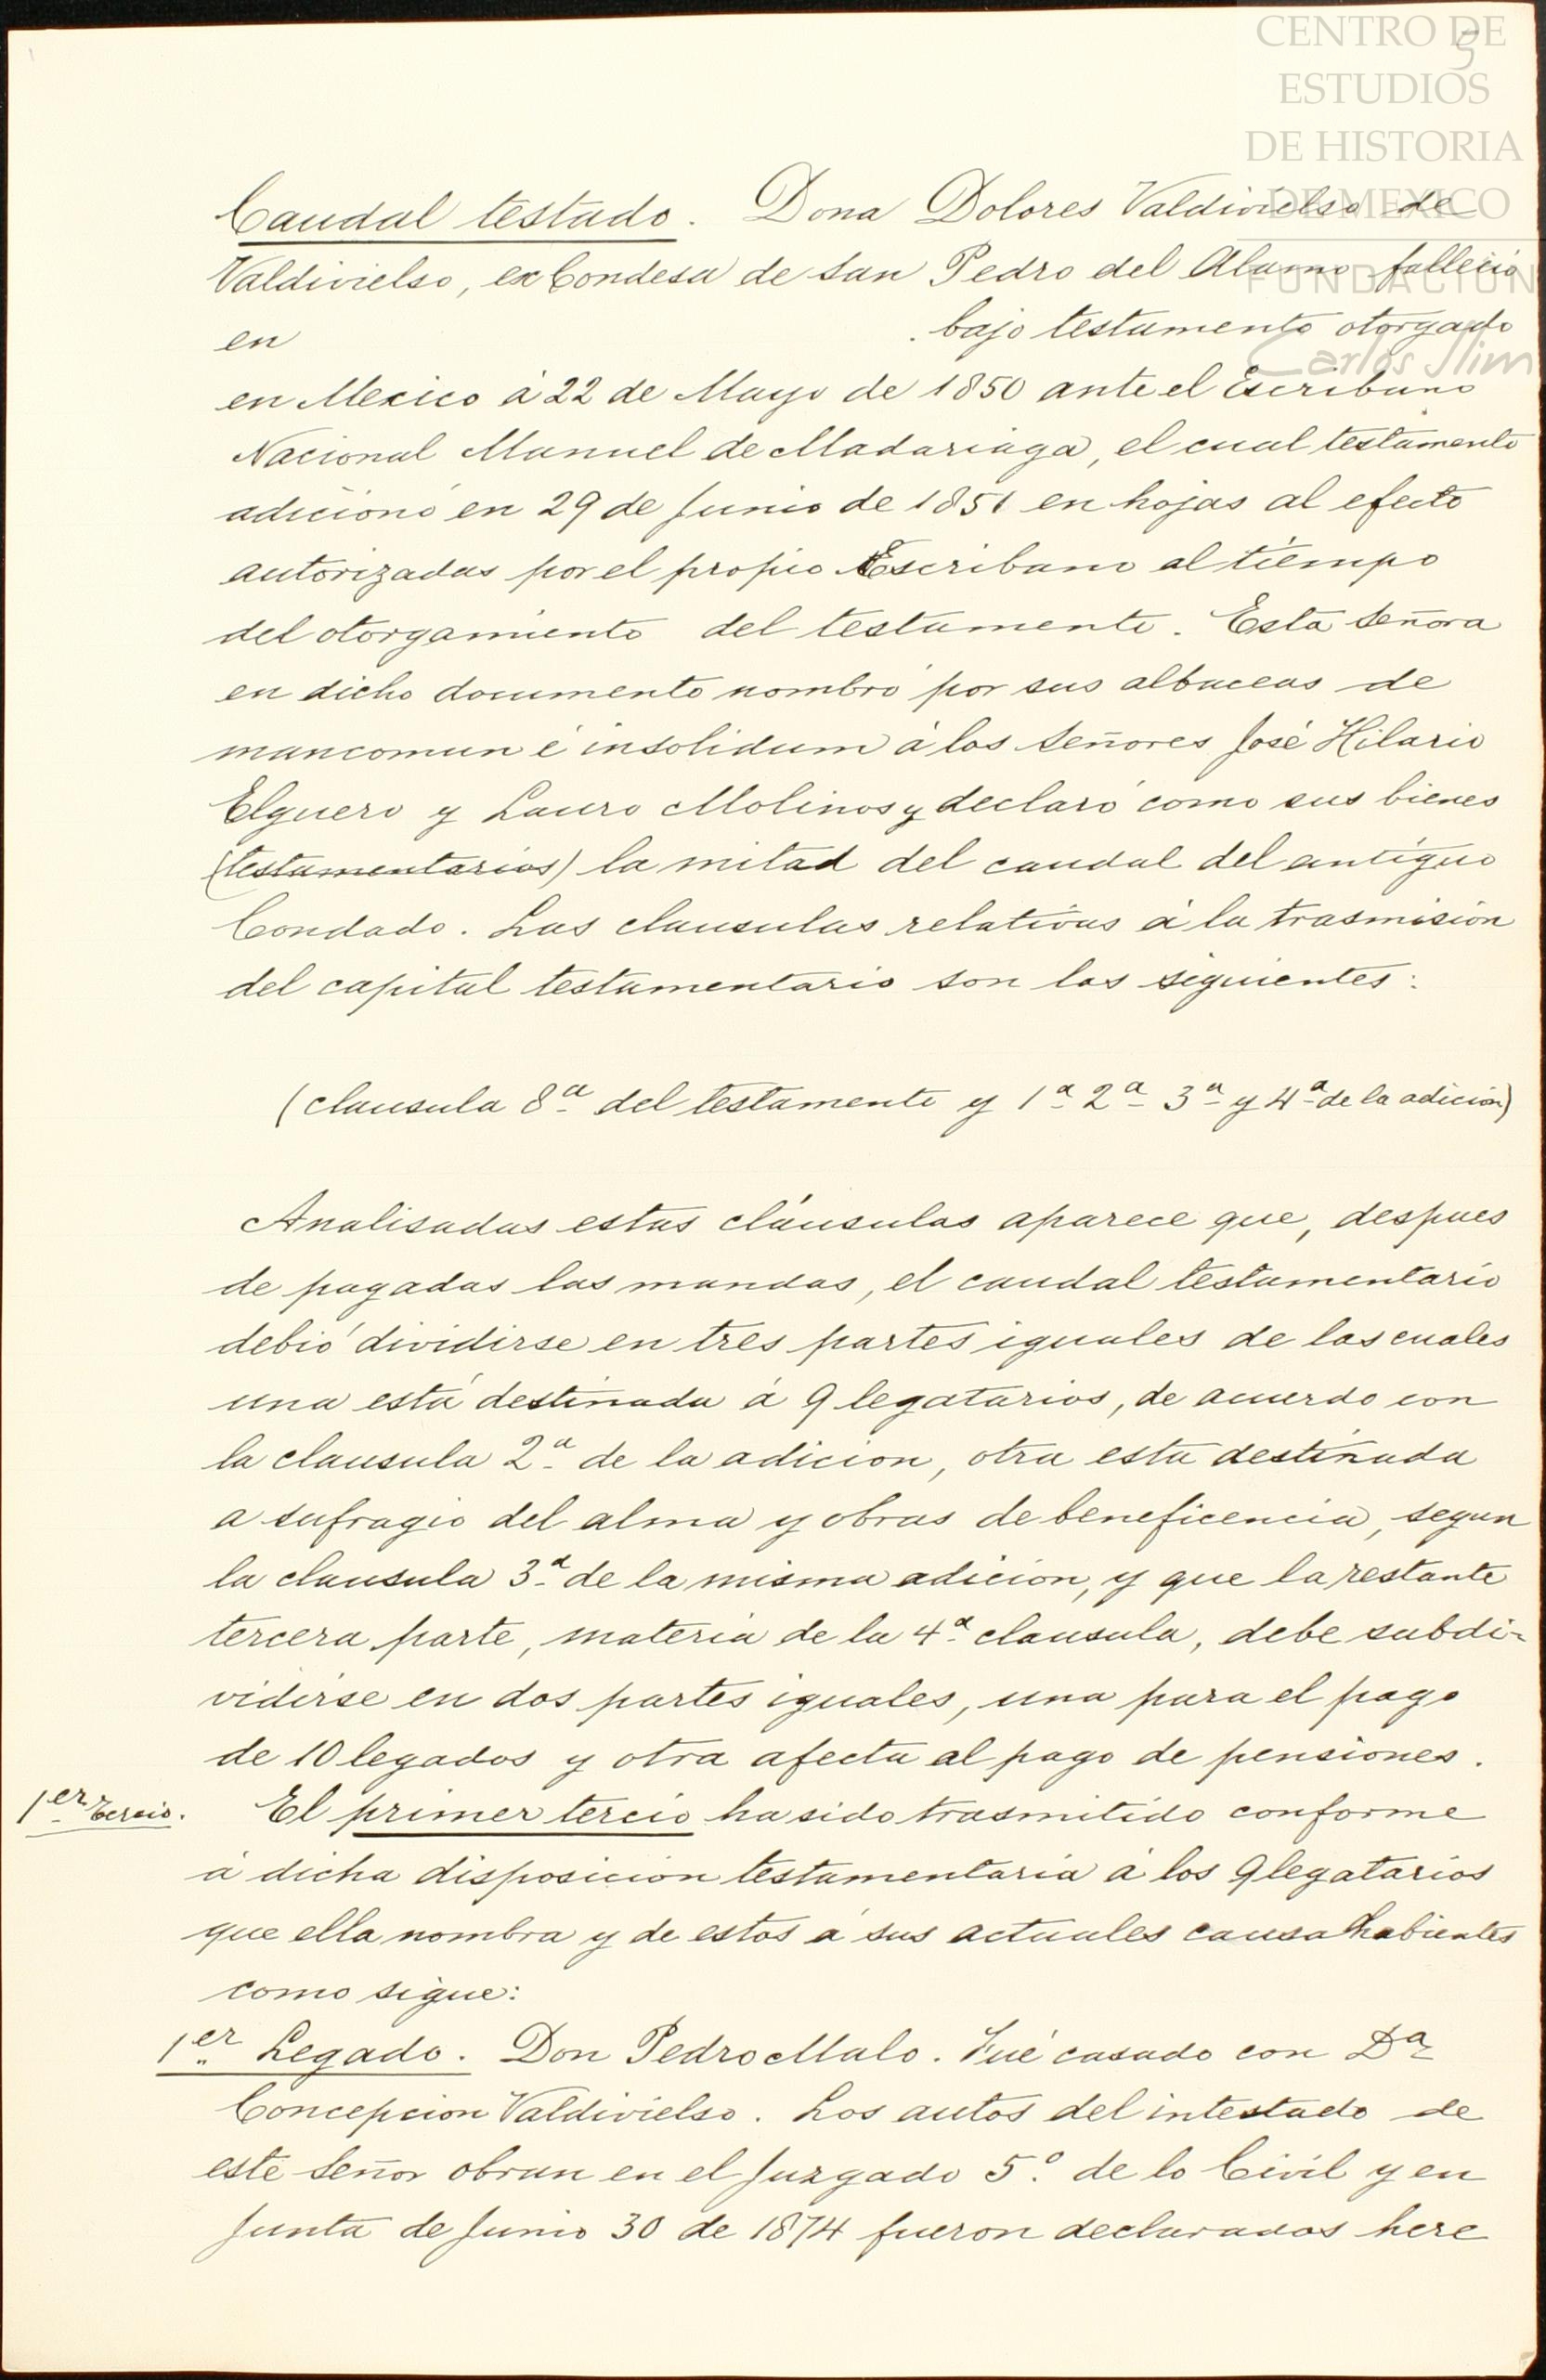 CENTRO DE
ESTUDIOS
DE HISTORIA
DE MEXICO
FUNDACIÓN
Carlos Slim
5
Caudal testado. Dona Dolores Valdivielso de
Valdivielso, ex Condesa de San Pedro del Alamo falleció
en . bajo testamento otorgado
en Mexico á 22 de Mayo de 1850 ante el Escribano
Nacional Manuel de Madariaga, el cual testamento
adicionó en 29 de Junio de 1851 en hojas al efecto
autorizadas por el propio Escribano al tiempo
del otorgamiento del testamento. Esta Señora
en dicho documento nombró por sus albaceas de
mancomun é insolidum á los Señores José Hilario
Elguero y Lauro Molinos y declaró como sus bienes
(testamentarios) la mitad del caudal del antiguo
Condado. Las clausulas relativas á la trasmisión
del capital testamentario son las siguientes:
(clausula 8ª del testamento y 1ª 2ª 3ª y 4ª de la adición)
Analisadas estas cláusulas aparece que, despues
de pagadas las mandas, el caudal testamentario
debió dividirse en tres partes iguales de las cuales
una está destinada á 9 legatarios, de acuerdo con
la clausula 2ª de la adicion, otra esta destinada
a sufragio del alma y obras de beneficencia, segun
la clausula 3ª de la misma adicion, y que la restante
tercera parte, materia de la 4ª clausula, debe subdi-
vidirse en dos partes iguales, una para el pago
de 10 legados y otra afecta al pago de pensiones.
1er Tercio. El primer tercio ha sido trasmitido conforme
á dicha disposicion testamentaria á los 9 legatarios
que ella nombra y de estos á sus actuales causahabientes
como sigue:
1er Legado. Don Pedro Malo. Fué casado con Dª
Concepcion Valdivielso. Los autos del intestado de
este Señor obran en el Juzgado 5º de lo Civil y en
Junta de Junio 30 de 1874 fueron declarados here